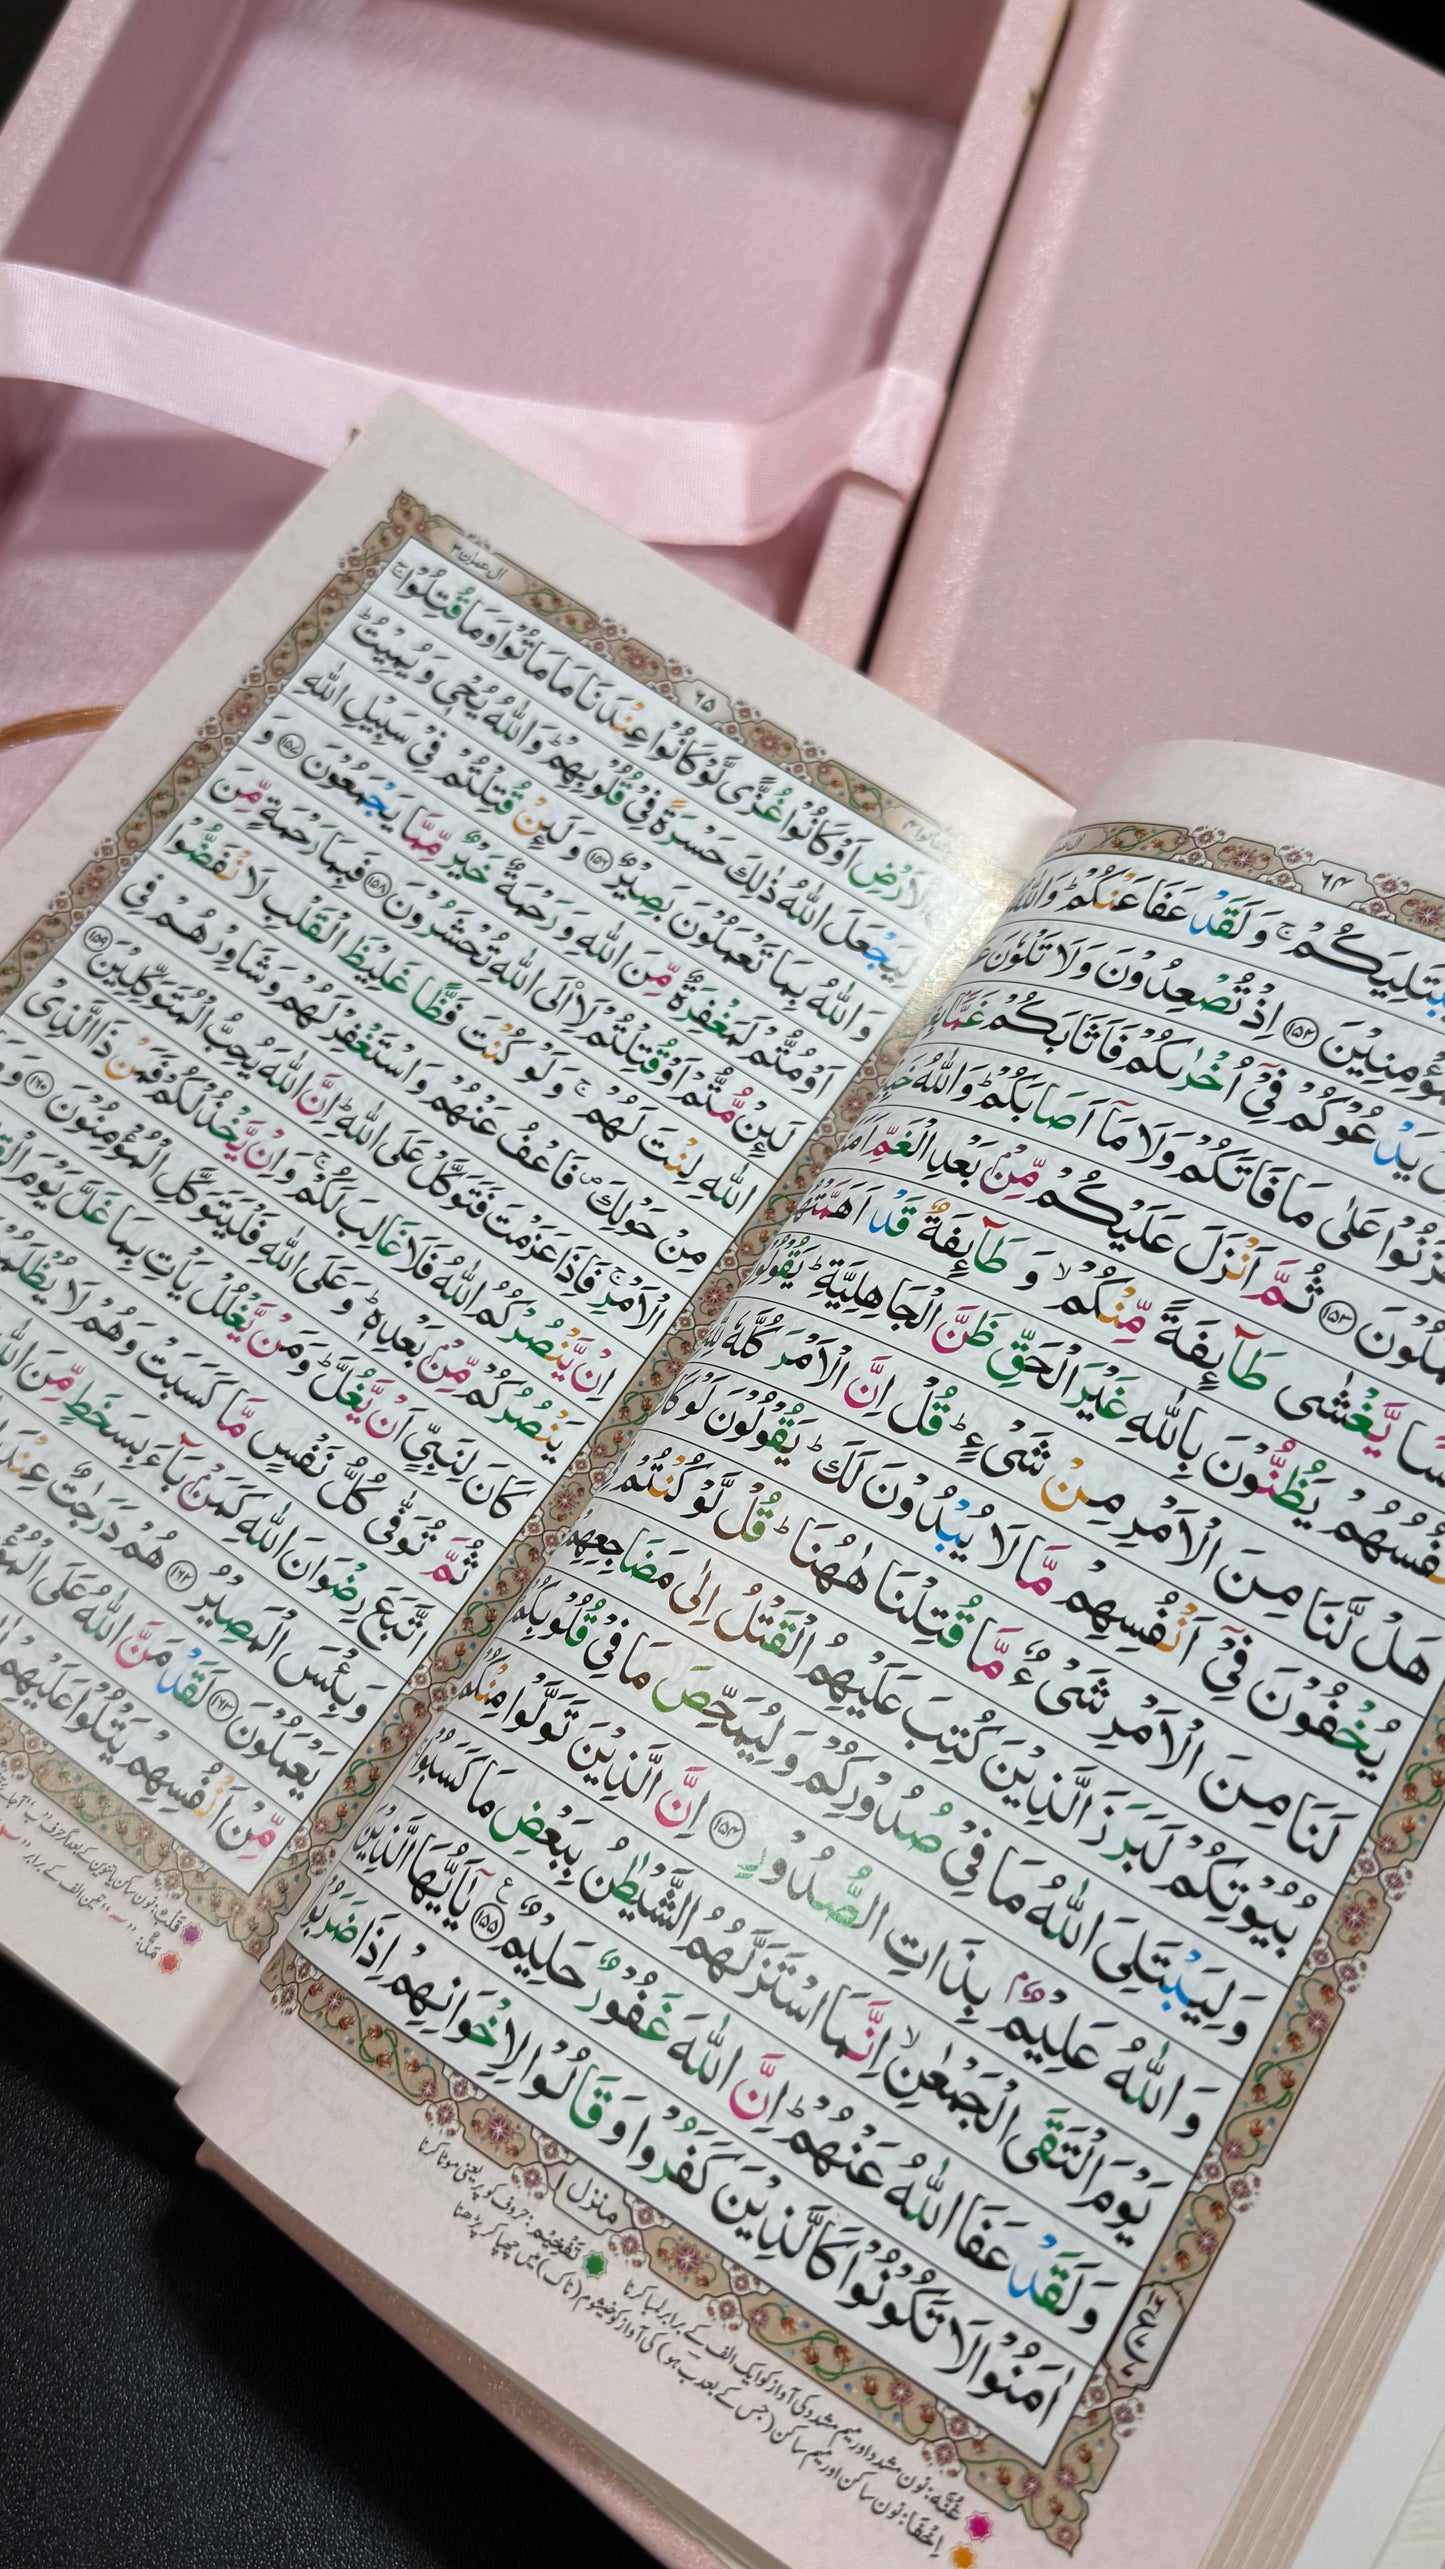 ٦٤
وَلَقَدْ عَفَا عَنْكُمْ ؕ وَاللّٰهُ
۝۱۵۲ اِذْ تُصْعِدُوْنَ وَلَا تَلْوٗنَ
يَدْعُوْكُمْ فِيْۤ اُخْرٰىكُمْ فَاَثَابَكُمْ غَمًّۢا
عَلٰى مَا فَاتَكُمْ وَلَا مَاۤ اَصَابَكُمْ ؕ وَاللّٰهُ
۝۱۵۳ ثُمَّ اَنْزَلَ عَلَيْكُمْ مِّنْۢ بَعْدِ الْغَمِّ
يَّغْشٰى طَآىِٕفَةً مِّنْكُمْ ۙ وَ طَآىِٕفَةٌ قَدْ اَهَمَّتْهُمْ
يَظُنُّوْنَ بِاللّٰهِ غَيْرَ الْحَقِّ ظَنَّ الْجَاهِلِيَّةِ ؕ يَقُوْلُوْنَ
هَلْ لَّنَا مِنَ الْاَمْرِ مِنْ شَيْءٍ ؕ قُلْ اِنَّ الْاَمْرَ كُلَّهٗ لِلّٰهِ
يُخْفُوْنَ فِيْۤ اَنْفُسِهِمْ مَّا لَا يُبْدُوْنَ لَكَ ؕ يَقُوْلُوْنَ لَوْ كَانَ
لَنَا مِنَ الْاَمْرِ شَيْءٌ مَّا قُتِلْنَا هٰهُنَا ؕ قُلْ لَّوْ كُنْتُمْ فِيْ
بُيُوْتِكُمْ لَبَرَزَ الَّذِيْنَ كُتِبَ عَلَيْهِمُ الْقَتْلُ اِلٰى مَضَاجِعِهِمْ
وَلِيَبْتَلِيَ اللّٰهُ مَا فِيْ صُدُوْرِكُمْ وَلِيُمَحِّصَ مَا فِيْ قُلُوْبِكُمْ
وَاللّٰهُ عَلِيْمٌۢ بِذَاتِ الصُّدُوْرِ ۝۱۵۴ اِنَّ الَّذِيْنَ تَوَلَّوْا مِنْكُمْ
يَوْمَ الْتَقَى الْجَمْعٰنِ ۙ اِنَّمَا اسْتَزَلَّهُمُ الشَّيْطٰنُ بِبَعْضِ مَا كَسَبُوْا
وَلَقَدْ عَفَا اللّٰهُ عَنْهُمْ ؕ اِنَّ اللّٰهَ غَفُوْرٌ حَلِيْمٌ ۝۱۵۵ يٰۤاَيُّهَا الَّذِيْنَ
اٰمَنُوْا لَا تَكُوْنُوْا كَالَّذِيْنَ كَفَرُوْا وَقَالُوْا لِاِخْوَانِهِمْ اِذَا ضَرَبُوْا
منزل ۱
غُنَّہ: نون مشدد اور میم مشدد کی آواز کو ایک الف کے برابر لمبا کرنا
تَفْخِیم: حروف کو پُر یعنی موٹا کرنا
اِخْفَا: نون ساکن اور میم ساکن (جس کے بعد ب ہو) کی آواز کو خیشوم (ناک) میں چھپا کر پڑھنا
٦٥
ال عمرٰن ۳
الْاَرْضِ اَوْ كَانُوْا غُزًّى لَّوْ كَانُوْا عِنْدَنَا مَا مَاتُوْا وَمَا قُتِلُوْا ۚ
لِيَجْعَلَ اللّٰهُ ذٰلِكَ حَسْرَةً فِيْ قُلُوْبِهِمْ ؕ وَاللّٰهُ يُحْيٖ وَيُمِيْتُ ؕ
وَاللّٰهُ بِمَا تَعْمَلُوْنَ بَصِيْرٌ ۝۱۵۶ وَلَىِٕنْ قُتِلْتُمْ فِيْ سَبِيْلِ اللّٰهِ
اَوْ مُتُّمْ لَمَغْفِرَةٌ مِّنَ اللّٰهِ وَرَحْمَةٌ خَيْرٌ مِّمَّا يَجْمَعُوْنَ ۝۱۵۷ وَ
لَىِٕنْ مُّتُّمْ اَوْ قُتِلْتُمْ لَاۡاِلَى اللّٰهِ تُحْشَرُوْنَ ۝۱۵۸ فَبِمَا رَحْمَةٍ مِّنَ
اللّٰهِ لِنْتَ لَهُمْ ۚ وَلَوْ كُنْتَ فَظًّا غَلِيْظَ الْقَلْبِ لَانْفَضُّوْا
مِنْ حَوْلِكَ ۪ فَاعْفُ عَنْهُمْ وَاسْتَغْفِرْ لَهُمْ وَشَاوِرْهُمْ فِي
الْاَمْرِ ۚ فَاِذَا عَزَمْتَ فَتَوَكَّلْ عَلَى اللّٰهِ ؕ اِنَّ اللّٰهَ يُحِبُّ الْمُتَوَكِّلِيْنَ ۝۱۵۹
اِنْ يَّنْصُرْكُمُ اللّٰهُ فَلَا غَالِبَ لَكُمْ ۚ وَاِنْ يَّخْذُلْكُمْ فَمَنْ ذَا الَّذِيْ
يَنْصُرُكُمْ مِّنْۢ بَعْدِهٖ ؕ وَعَلَى اللّٰهِ فَلْيَتَوَكَّلِ الْمُؤْمِنُوْنَ ۝۱۶۰ وَمَا
كَانَ لِنَبِيٍّ اَنْ يَّغُلَّ ؕ وَمَنْ يَّغْلُلْ يَاْتِ بِمَا غَلَّ يَوْمَ
ثُمَّ تُوَفّٰى كُلُّ نَفْسٍ مَّا كَسَبَتْ وَهُمْ لَا يُظْلَمُوْنَ
اتَّبَعَ رِضْوَانَ اللّٰهِ كَمَنْۢ بَآءَ بِسَخَطٍ مِّنَ اللّٰهِ
وَبِئْسَ الْمَصِيْرُ ۝۱۶۲ هُمْ دَرَجٰتٌ عِنْدَ
يَعْمَلُوْنَ ۝۱۶۳ لَقَدْ مَنَّ اللّٰهُ عَلَى
مِّنْ اَنْفُسِهِمْ يَتْلُوْا عَلَيْهِمْ
قَلْب: نون ساکن یا تنوین کے بعد اگر حرف "ب" آجا
مَدّ: "~" تین الف کے برابر